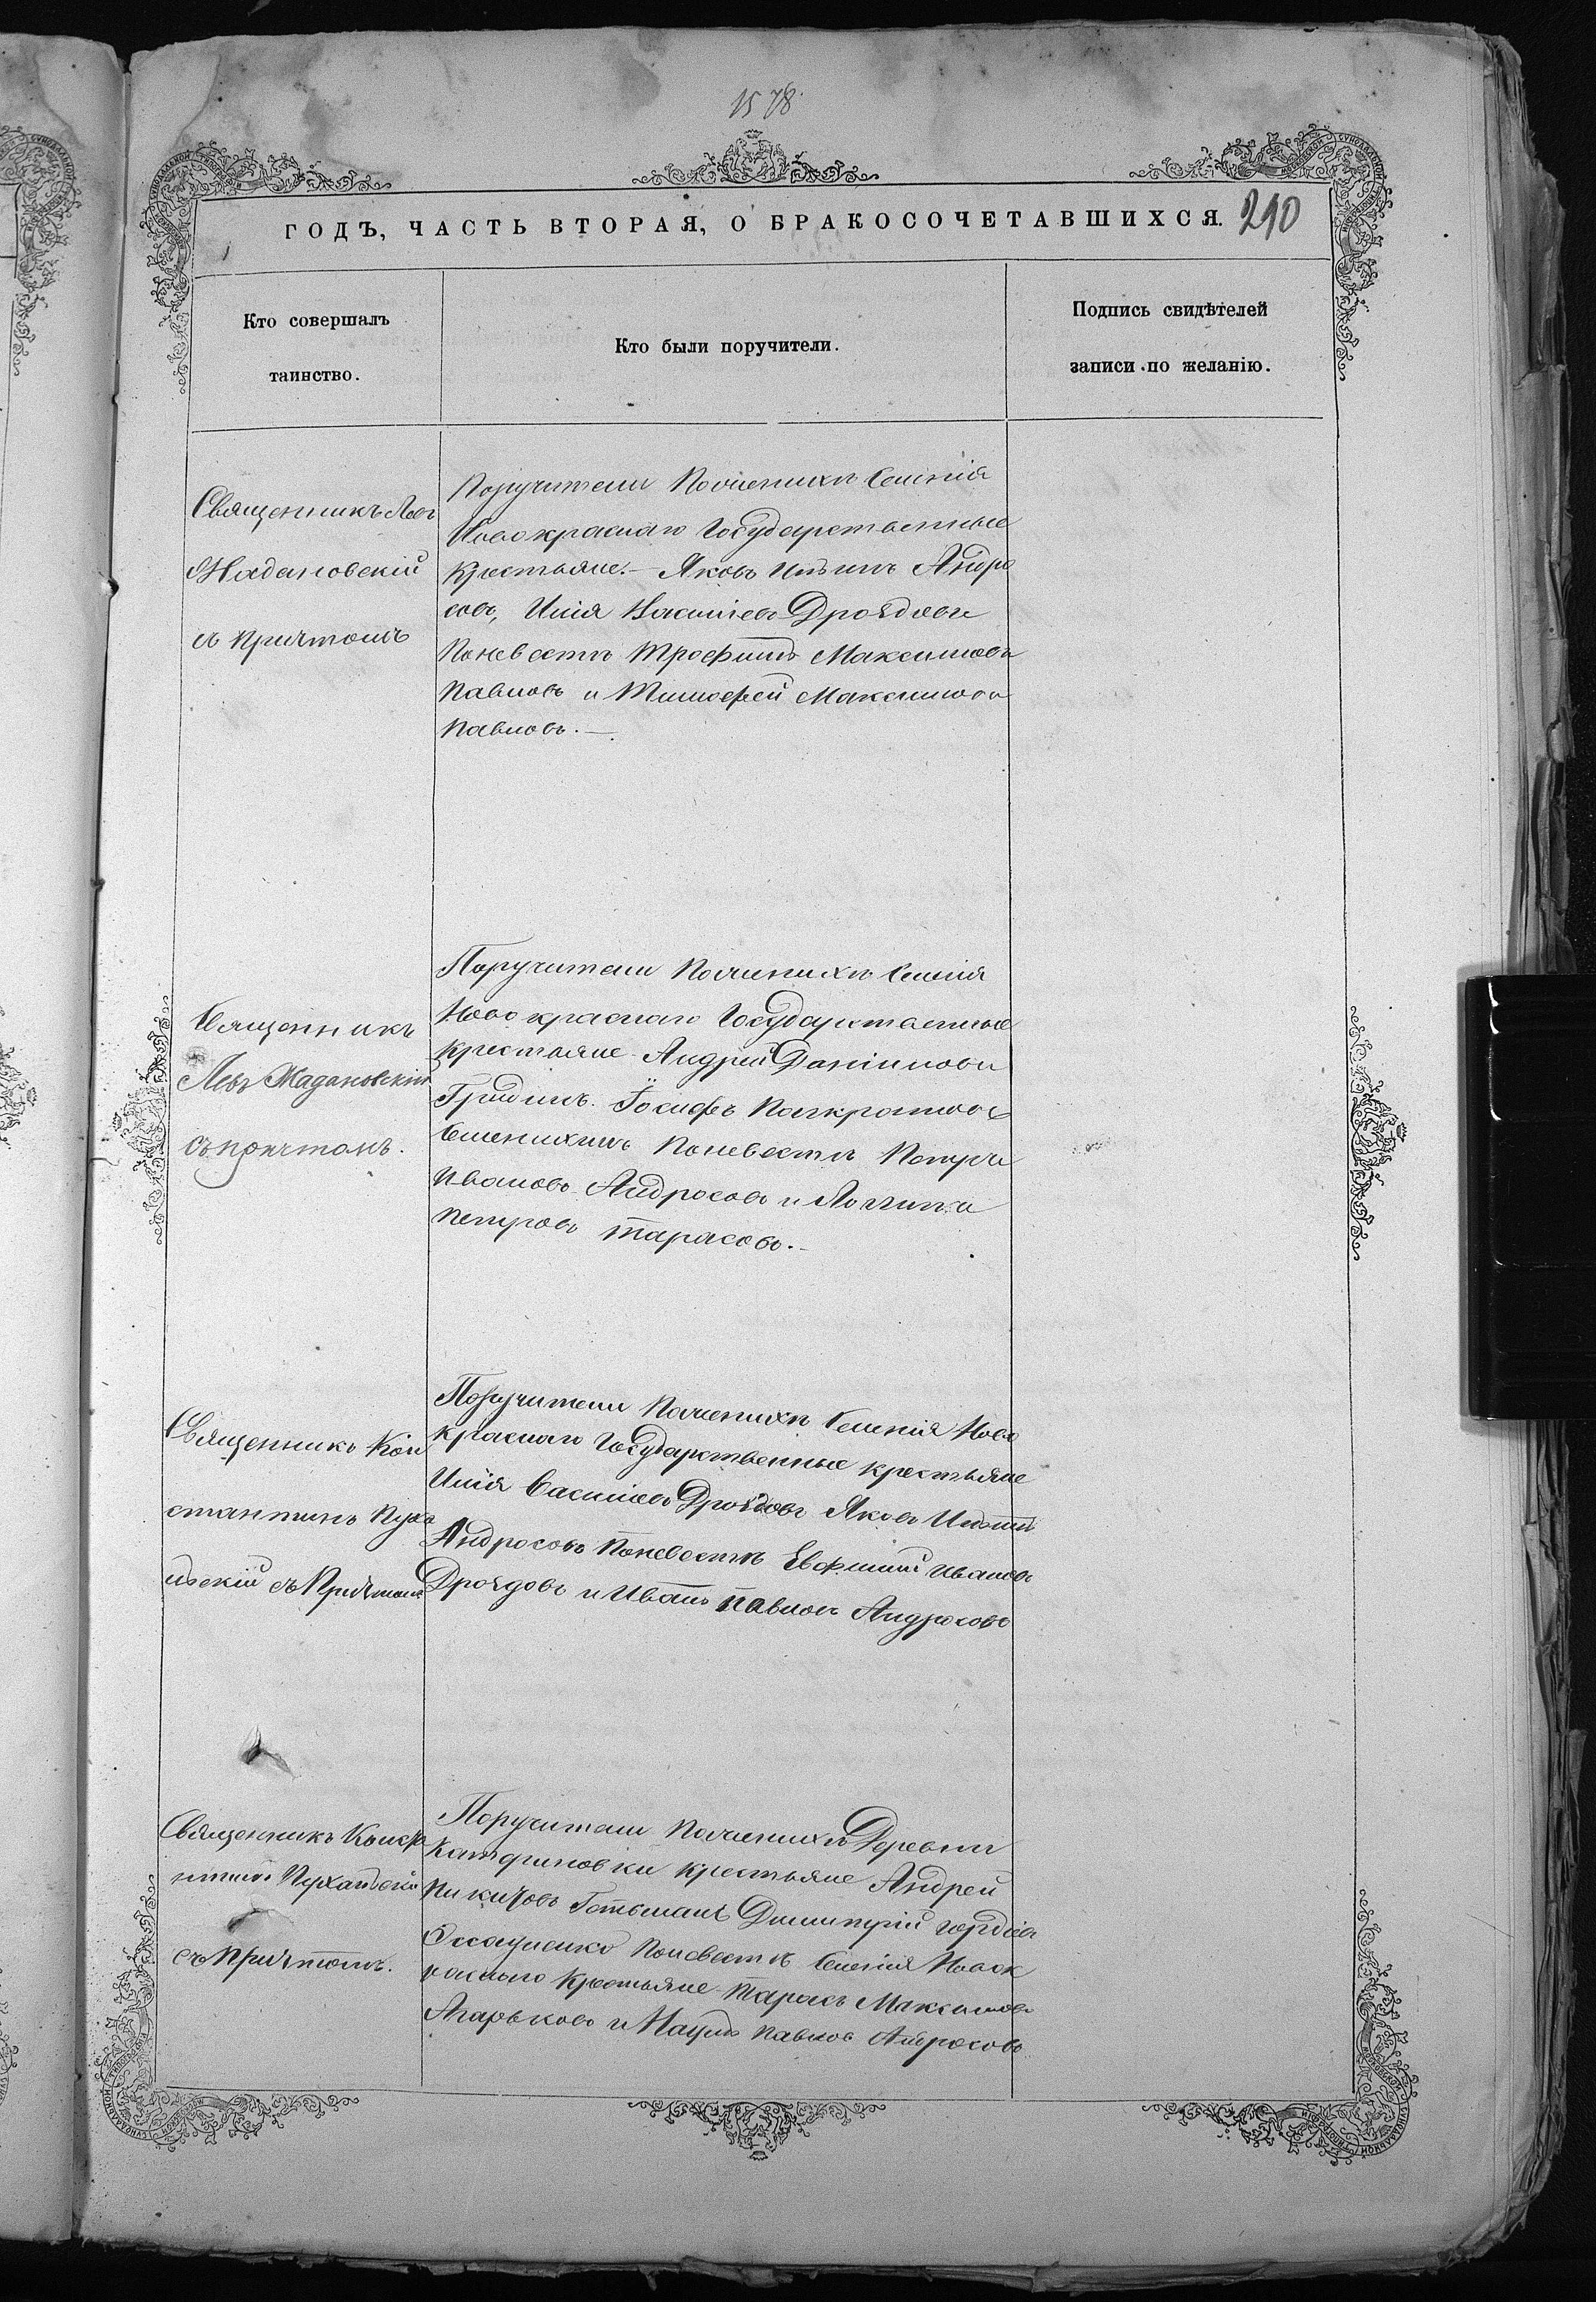 1578
ГОДЪ, ЧАСТЬ ВТОРАЯ, О БРАКОСОЧЕТАВШИХСЯ.
210
Кто совершалъ
таинство.
Кто были поручители.
Подпись свидѣтелей
записи по желанію.
Священникъ Левъ
Жадановскій
съ причтомъ
Поручители По женихѣ Селенія
Новокраснаго Государственные
крестьяне. Яковъ Ильинъ Андро
совъ, Илія Васильевъ Дроздовъ
По невестѣ Трофимъ Максимовъ
Павловъ и Тимофей Максимовъ
Павловъ. —
Священникъ
Левъ Жадановскій
съ причтомъ.
Поручители По женихѣ Селенія
Ново краснаго Государственные
крестьяне Андрей Даніиловъ
Гридинъ. Іосифъ Панкратовъ
По невестѣ Петръ
Ивановъ Андросовъ и
Петровъ Тарасовъ. —
Священникъ Кон
стантинъ Пуха
льскій съ Причтомъ
Поручители По женихѣ Селенія Ново
краснаго Государственные крестьяне
Илія Василіевъ Дроздовъ Яковъ Ильинъ
Андросовъ По невестѣ Евфимій Ивановъ
Дроздовъ и Иванъ Павловъ Андросовъ
Священникъ Конста
нтинъ Пухальскій
съ Причтомъ.
Поручители По женихѣ Деревни
Катериновки крестьяне Андрей
Никитовъ Гетьманъ Димитрій Гордіевъ
По невестѣ Селенія Новок
раснаго Крестьяне Тарасъ Максимовъ
Агарьковъ и Наумъ Павловъ Андросовъ